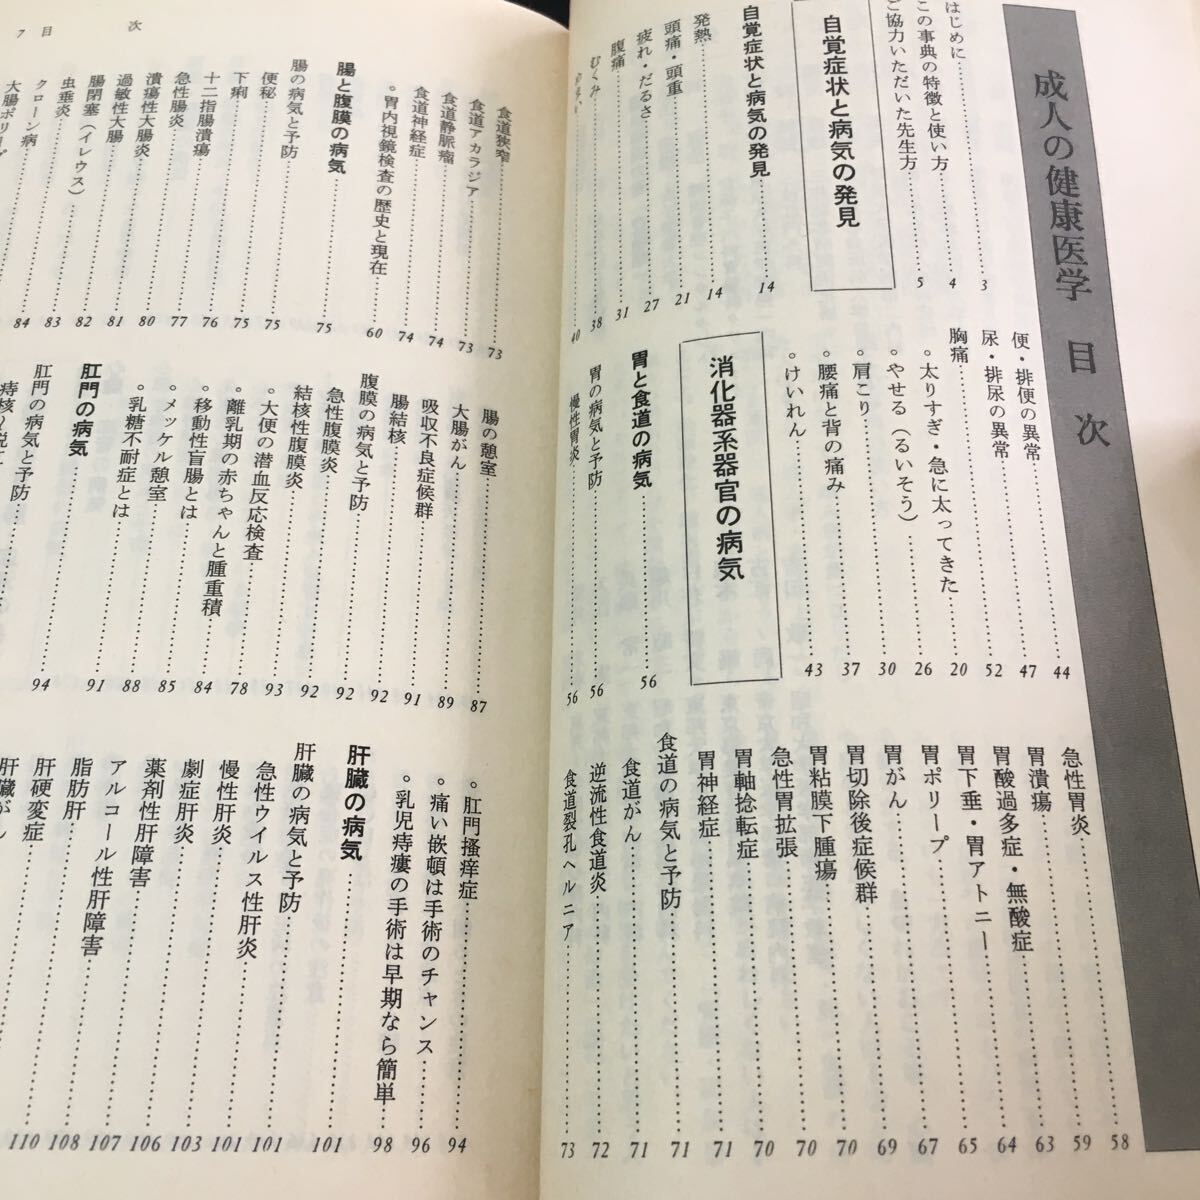 成人の健康医学 目次
はじめに……3
この事典の特徴と使い方……4
ご協力いただいた先生方……5
自覚症状と病気の発見
自覚症状と病気の発見……14
発熱……14
頭痛・頭重……21
疲れ・だるさ……27
腹痛……31
むくみ……38
40
便・排便の異常……44
尿・排尿の異常……47
胸痛……52
。太りすぎ・急に太ってきた……20
。やせる(るいそう)……26
。肩こり……30
。腰痛と背の痛み……37
。けいれん……43
消化器系器官の病気
胃と食道の病気……56
胃の病気と予防……56
慢性胃炎……56
急性胃炎……58
胃潰瘍……59
胃酸過多症・無酸症……63
胃下垂・胃アトニー……64
胃ポリープ……65
胃がん……67
胃切除後症候群……69
胃粘膜下腫瘍……70
急性胃拡張……70
胃軸捻転症……70
胃神経症……71
食道の病気と予防……71
食道がん……71
逆流性食道炎……72
食道裂孔ヘルニア……73
7 目 次
食道狭窄……73
食道アカラジア……73
食道静脈瘤……74
食道神経症……74
。胃内視鏡検査の歴史と現在……60
腸と腹膜の病気……75
腸の病気と予防……75
便秘……75
下痢……76
十二指腸潰瘍……77
急性腸炎……80
潰瘍性大腸炎……81
過敏性大腸……82
腸閉塞(イレウス)……83
虫垂炎……84
クローン病……
大腸ポリープ……
腸の憩室……87
大腸がん……89
吸収不良症候群……91
腸結核……92
腹膜の病気と予防……92
急性腹膜炎……92
結核性腹膜炎……93
。大便の潜血反応検査……78
。離乳期の赤ちゃんと腸重積……84
。移動性盲腸とは……85
。メッケル憩室……88
。乳糖不耐症とは……91
肛門の病気……94
肛門の病気と予防……
。肛門搔痒症……94
。痛い嵌頓は手術のチャンス……96
。乳児痔瘻の手術は早期なら簡単……98
肝臓の病気……101
肝臓の病気と予防……101
急性ウイルス性肝炎……101
慢性肝炎……103
劇症肝炎……106
薬剤性肝障害……107
アルコール性肝障害……108
脂肪肝……110
肝硬変症……
肝臓がん